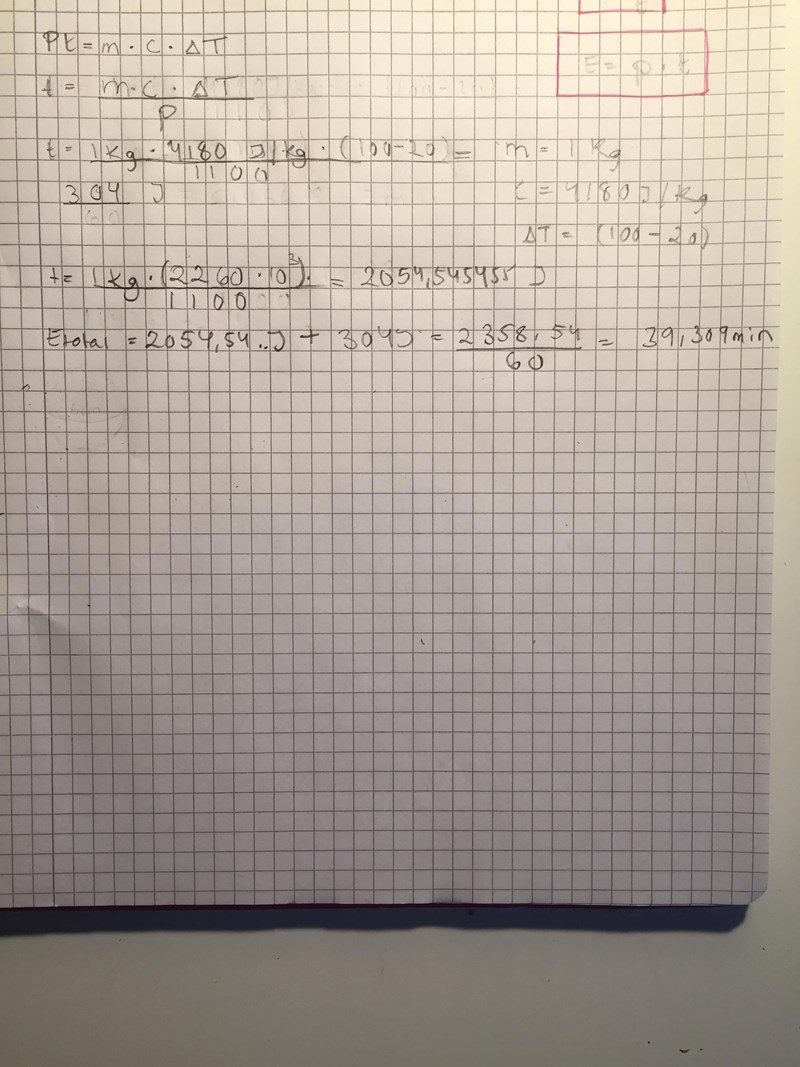 Pt = m · c · ΔT
E = p · t
t = m · c · ΔT / p
t = 1 kg · 4180 J/kg · (100-20) / 1100 =
304 J
m = 1 kg
c = 4180 J/kg
ΔT = (100-20)
t = 1 kg · (2260 · 10³) · / 1100 = 2054,545455 J
Etotal = 2054,54 J + 304 J = 2358,54 / 60 = 39,309 min